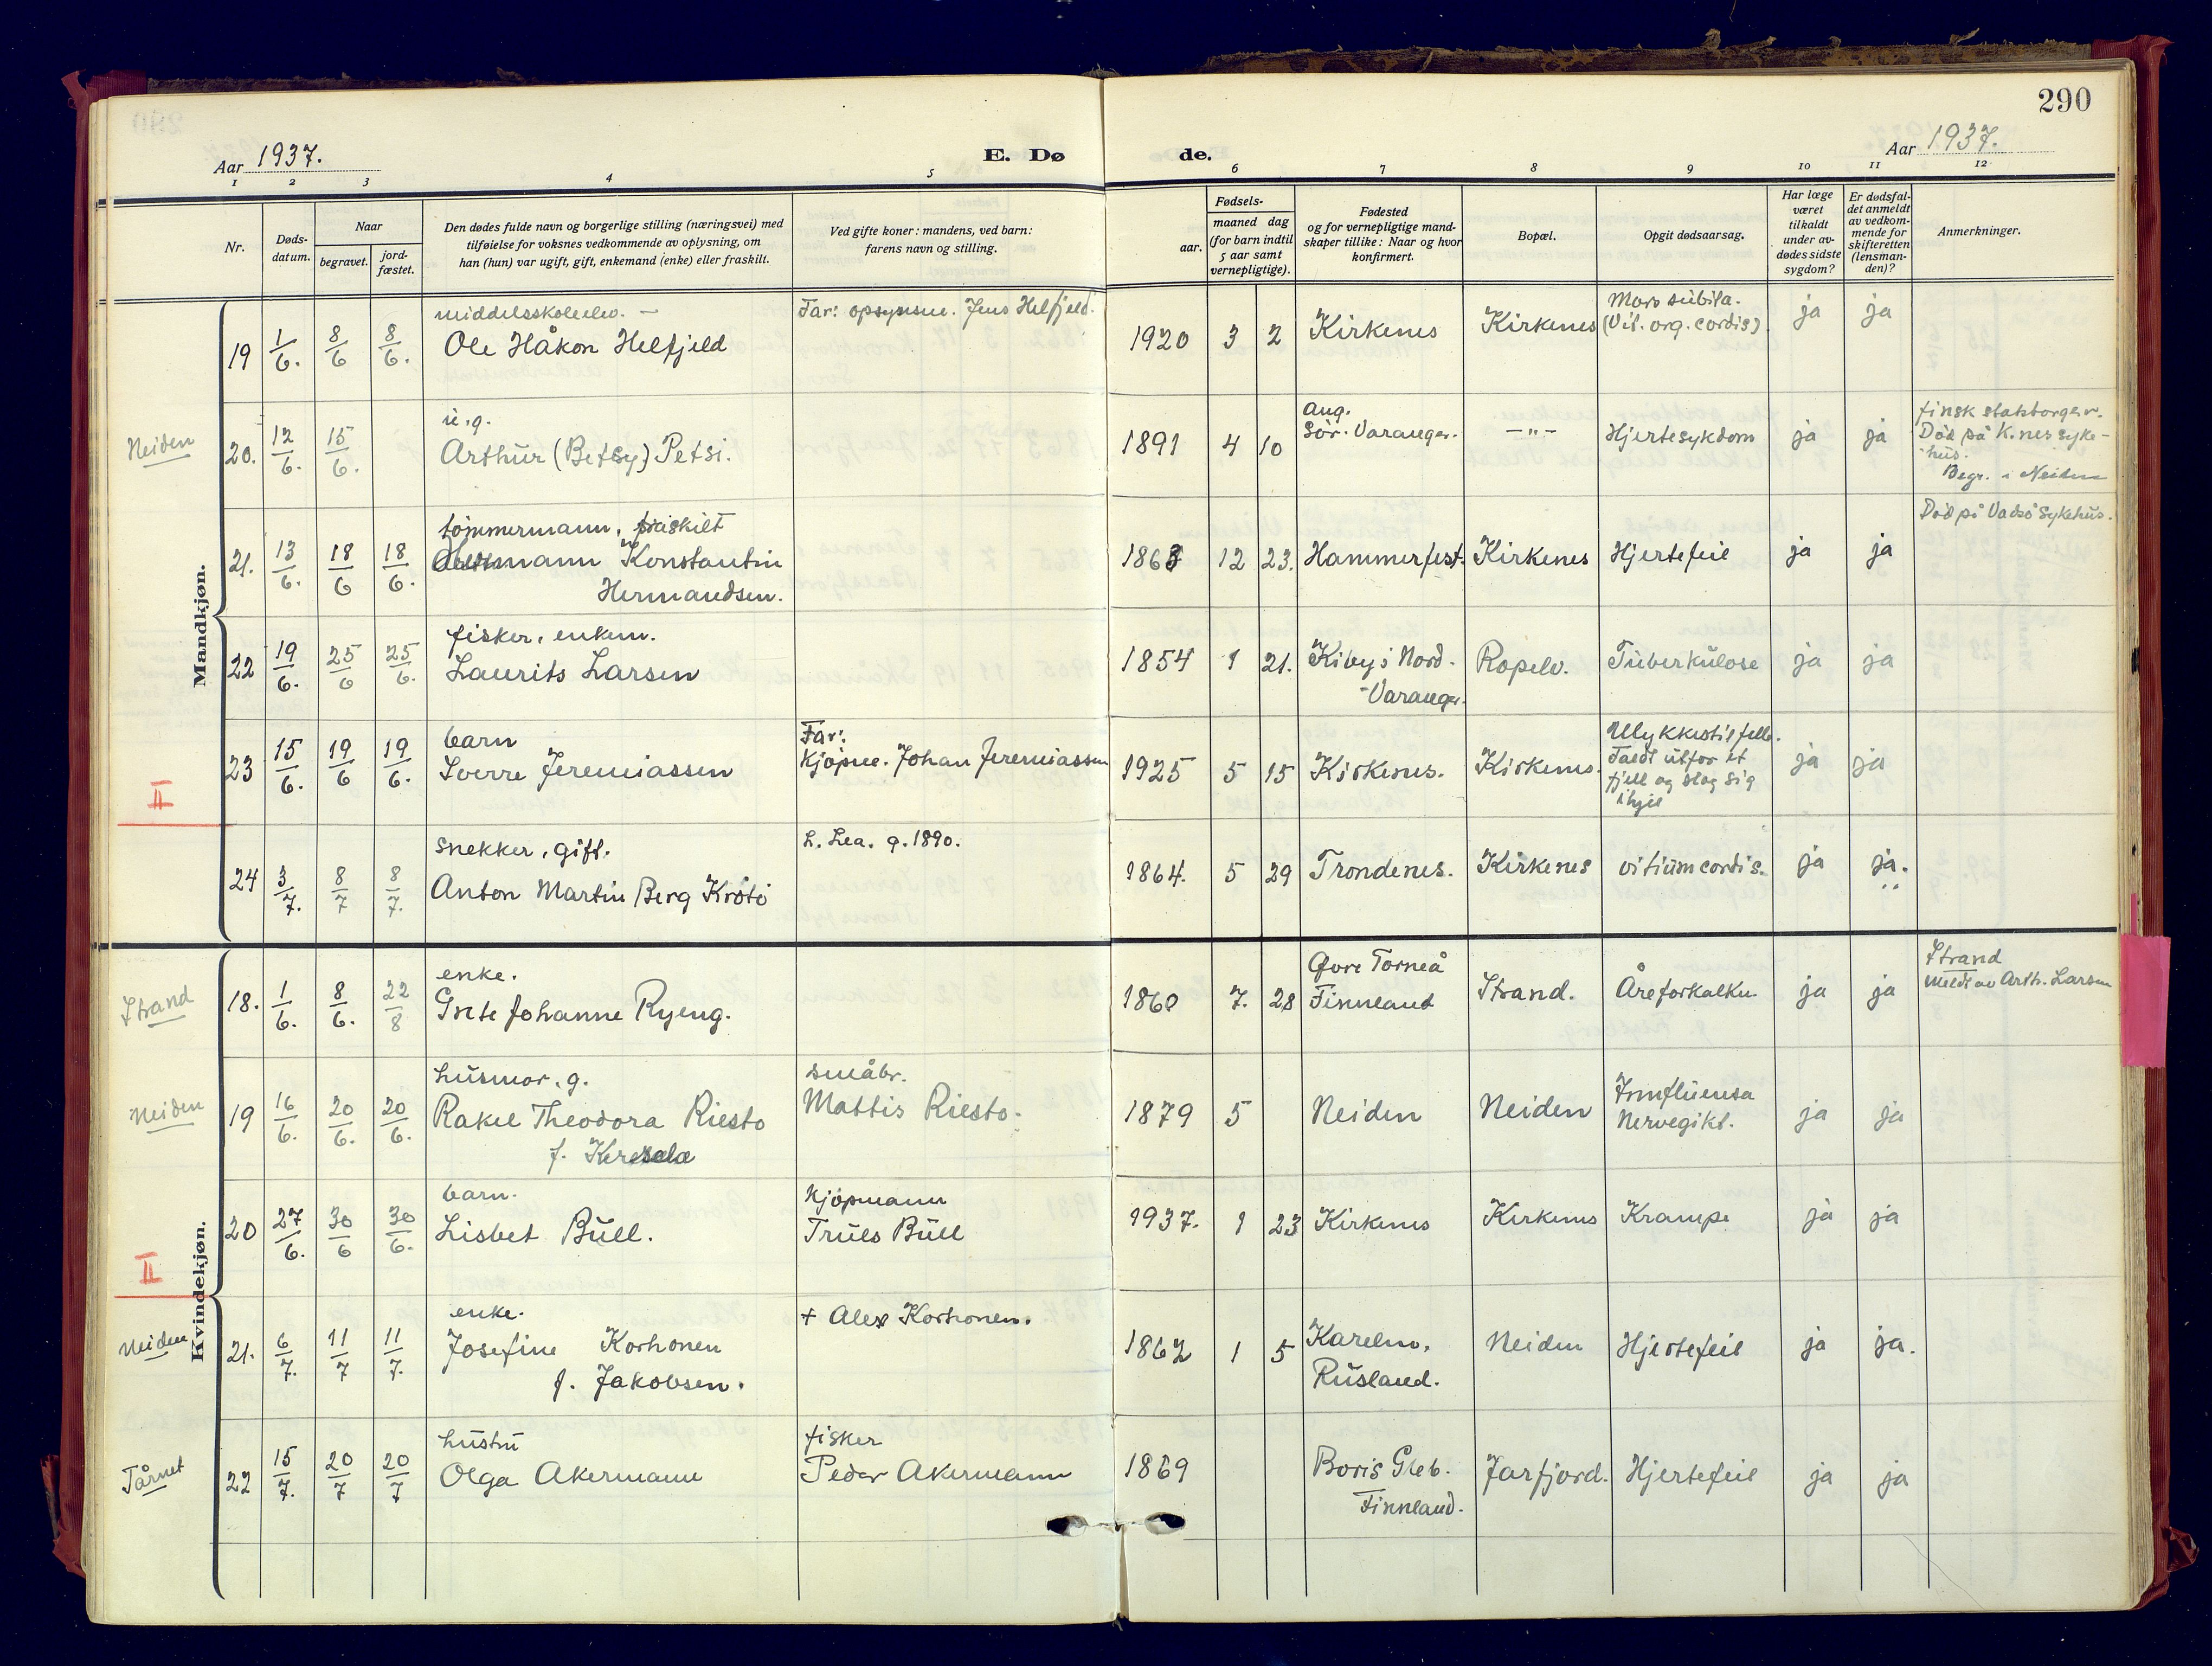 290
Aar 1937.
E. Dø
de.
Aar 1937.
1 2 3 4 5 6 7 8 9 10 11 12
Nr.
Døds-
datum.
Naar
begravet.
jord-
fæstet.
Den dødes fulde navn og borgerlige stilling (næringsvei) med
tilføielse for voksnes vedkommende av oplysning, om
han (hun) var ugift, gift, enkemand (enke) eller fraskilt.
Ved gifte koner: mandens, ved barn:
farens navn og stilling.
Fødsels-
aar.
maaned dag
(for barn indtil
5 aar samt
vernepligtige).
Fødested
og for vernepligtige mand-
skaper tillike: Naar og hvor
konfirmert.
Bopæl.
Opgit dødsaarsag.
Har læge
været
tilkaldt
under av-
dødes sidste
sygdom?
Er dødsfal-
det anmeldt
av vedkom-
mende for
skifteretten
(lensman-
den)?
Anmerkninger.
Mandkjøn.
middelsskoleelev. —
19 1/6. 8/6 8/6. Ole Håkon Helfjeld
Far: opsynsm. Jens Helfjeld.
1920 3 2 Kirkenes Kirkenes
Mors subita.
(Vit. org. cordis)
ja ja
Neiden
u. g.
20. 12/6. 15/6. Arthur (Betsy) Petsi.
1891 4 10
Aug.
Sør-Varanger.
—"— Hjertesykdom ja ja
finsk statsborger.
Død på K.nes syke-
hus.
Begr. i Neiden
tømmermann, fraskilt
21. 13/6. 18/6 18/6. Konstantin
Hermandsen.
1863 12 23. Hammerfest. Kirkenes Hjertefeil ja ja
Død på Vadsø Sykehus.
fisker, enkem.
22 19/6. 25/6 25/6. Laurits Larsen
1854 1 21. Kiby i Nord-
-Varanger.
Ropelv. Tuberkulose ja ja
barn
23 15/6. 19/6 19/6. Sverre Jeremiassen
Far:
Kjøpm. Johan Jeremiassen
1925 5 15 Kirkenes. Kirkenes.
Ulykkestilfelle.
Faldt utfor et
fjell og slog sig
ihjel
ja ja
II
snekker, gift.
24 3/7. 8/7 8/7. Anton Martin Berg Krøtø
L. Lea. g. 1890.
1864. 5 29 Trondenes. Kirkenes vitium cordis. ja ja.
Kvindekjøn.
Strand
enke.
18. 1/6. 8/6. 22/8 Grete Johanne Ryeng.
1860 7. 28
Øvre Torneå
Finnland
Strand. Åreforkalkn. ja ja
Strand
meldt av Arth. Larsen
Neiden
husmor, g.
19 16/6. 20/6. 20/6. Rakel Theodora Riesto
f.
småbr.
Mattis Riesto.
1879 5 Neiden Neiden
Innfluensa
Nervegikt.
ja ja
barn.
20 27/6. 30/6 30/6. Lisbet Bull.
Kjøpmann
Truls Bull
1937. 1 23 Kirkenes Kirkenes Krampe ja ja
II
Neiden
enke.
21. 6/7. 11/7 11/7. Josefine Korhonen
f. Jakobsen.
+ Alex Korhonen.
1862 1 5 Karelen,
Rusland.
Neiden Hjertefeil ja ja.
Tårnet
hustru
22 15/7. 20/7 20/7 Olga Akermann
fisker
Peder Akermann
1869 Boris Gleb.
Finnland.
Jarfjord. Hjertefeil ja ja